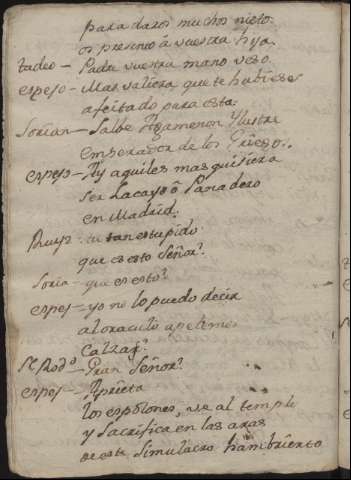 para daros muchos nieto-
os presento â vuestra hija
tadeo - Padre vuestra mano veso
espejo - Mas valiera que te hubiese
afeitado para esta.
Sorian - Salbe Agamenon Ylustre
emperador de los Griegos.
espejo - Ay aquiles mas quisiera
ser Lacayo ô Panadero
en Madrid.
Ruyz - estan estupido
que es esto Señor?
Soria - que es esto?
espej - yo no lo puedo decir
al oraculo apelemos
Calzar?
Sr Rodo - Gran Señor?
espej - Aprieta
los espolones, ve al templo
y Sacrifica en las aras
de este Simulacro hambriento